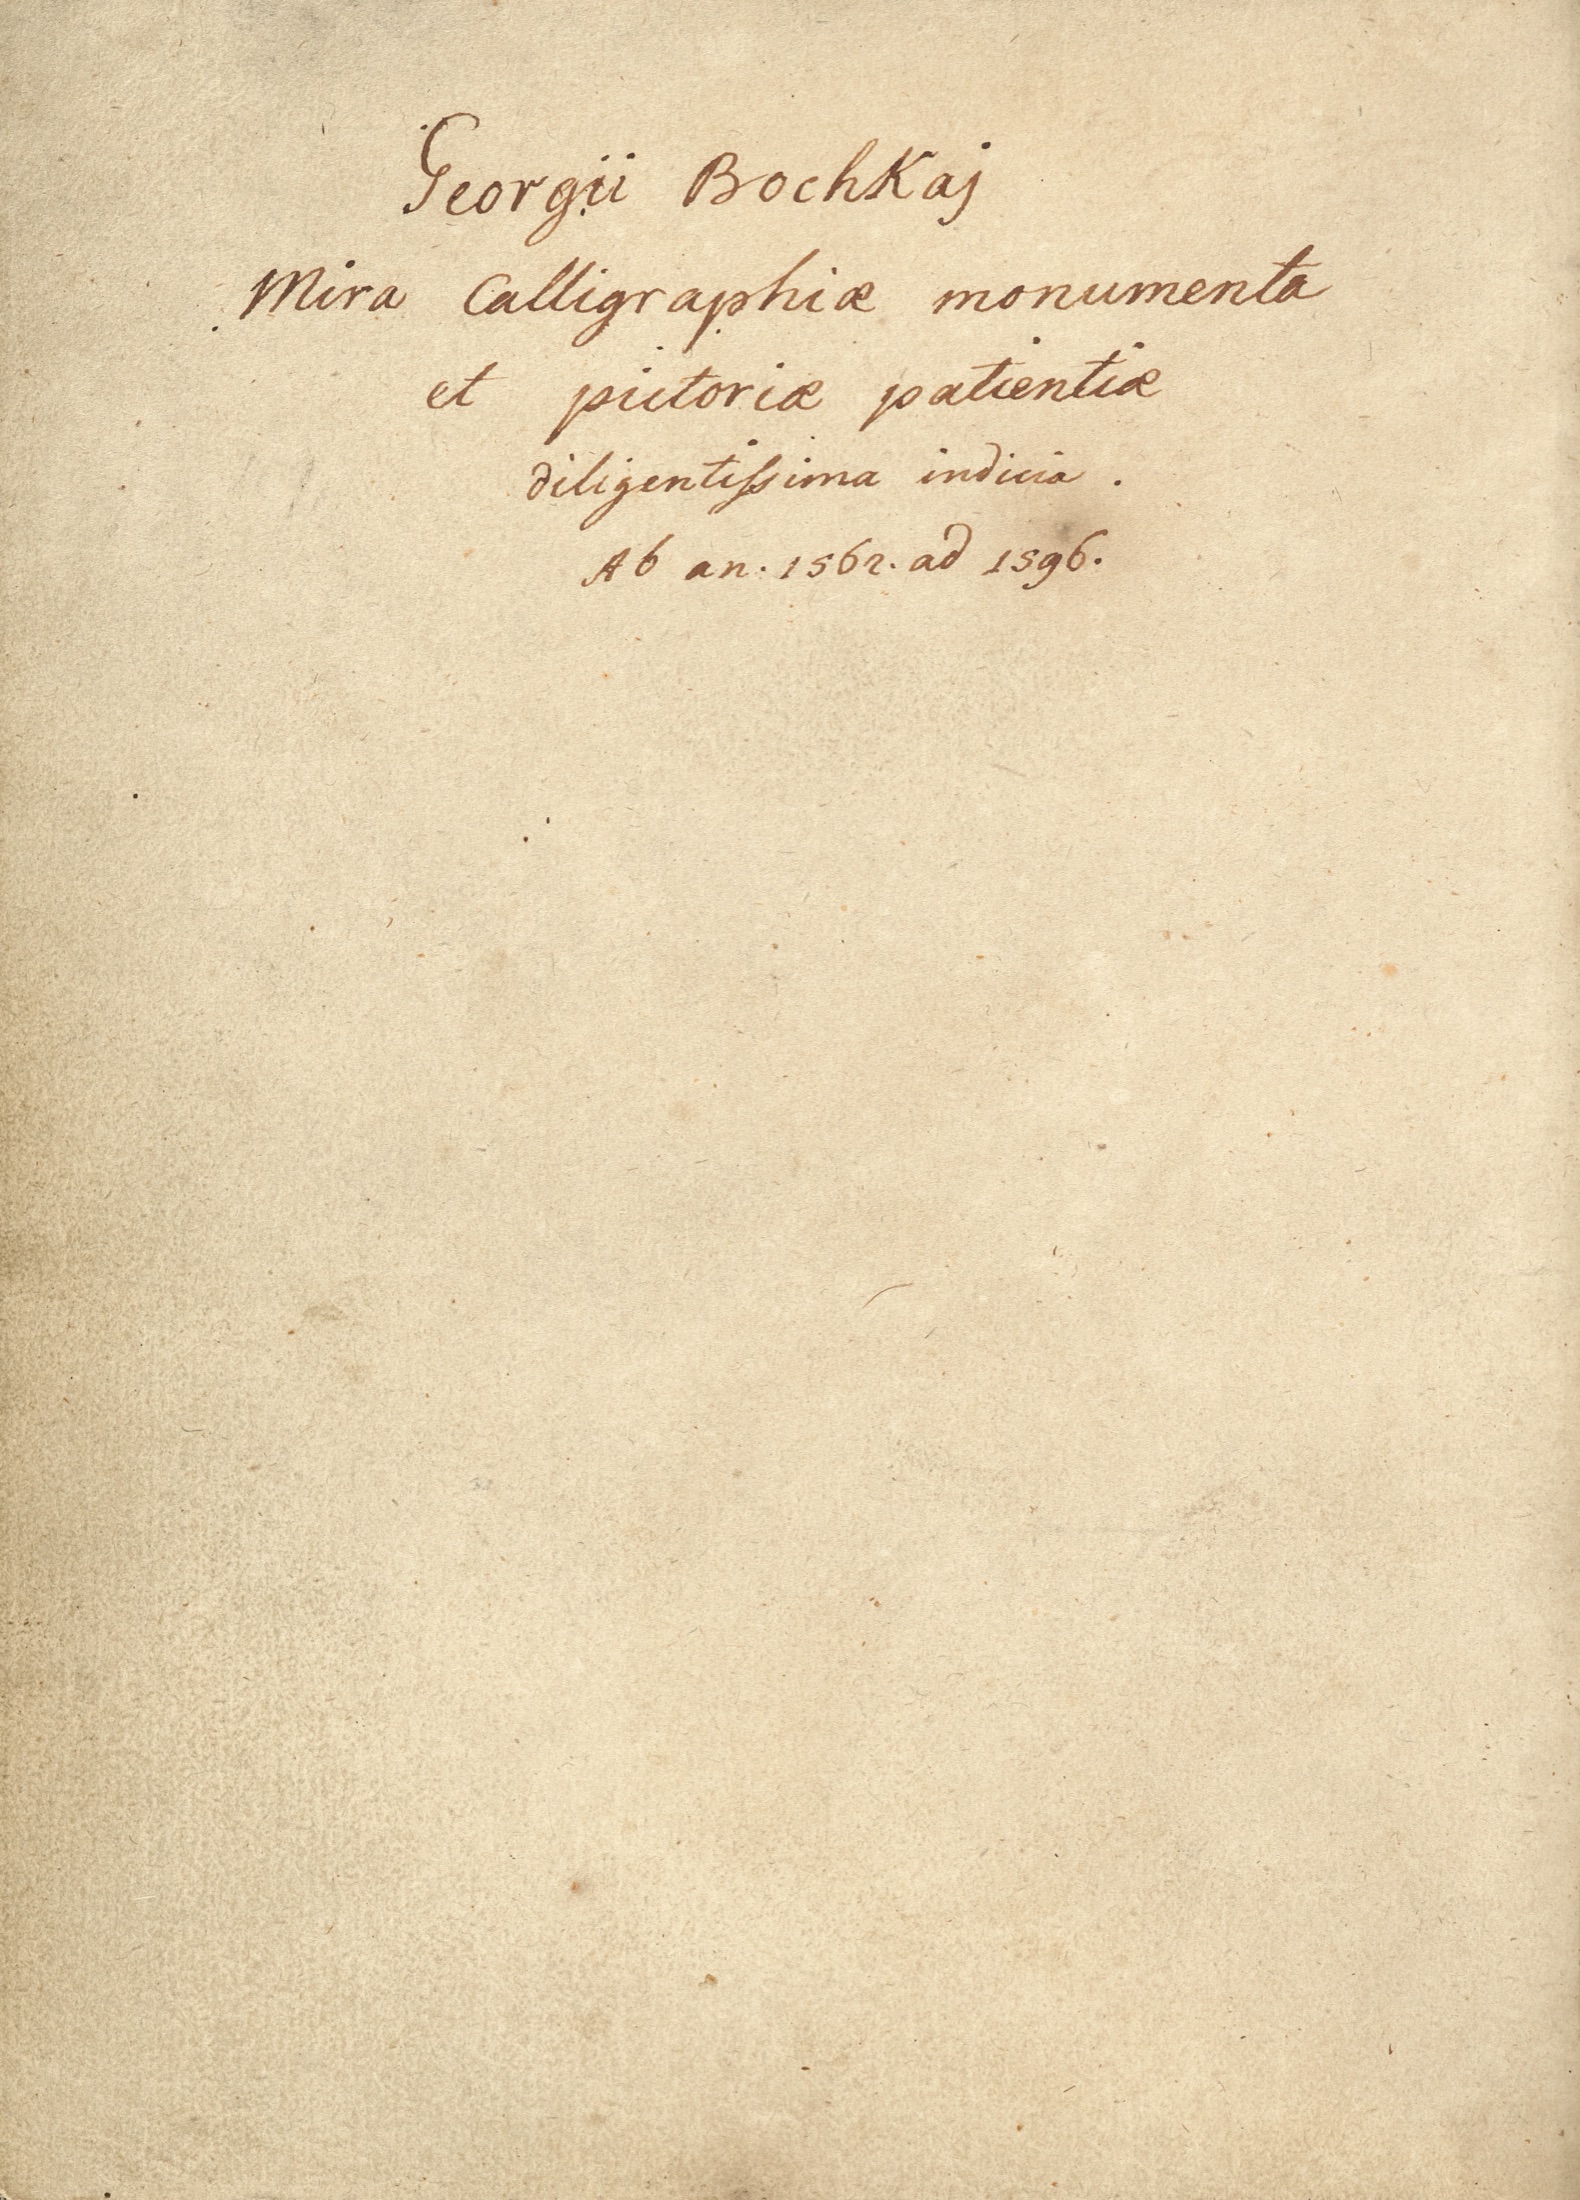 Georgii Bochkaj
Mira Calligraphiæ monumenta
et pictoriæ patientiæ
diligentiſsima indicia .
Ab an. 1562. ad 1596.